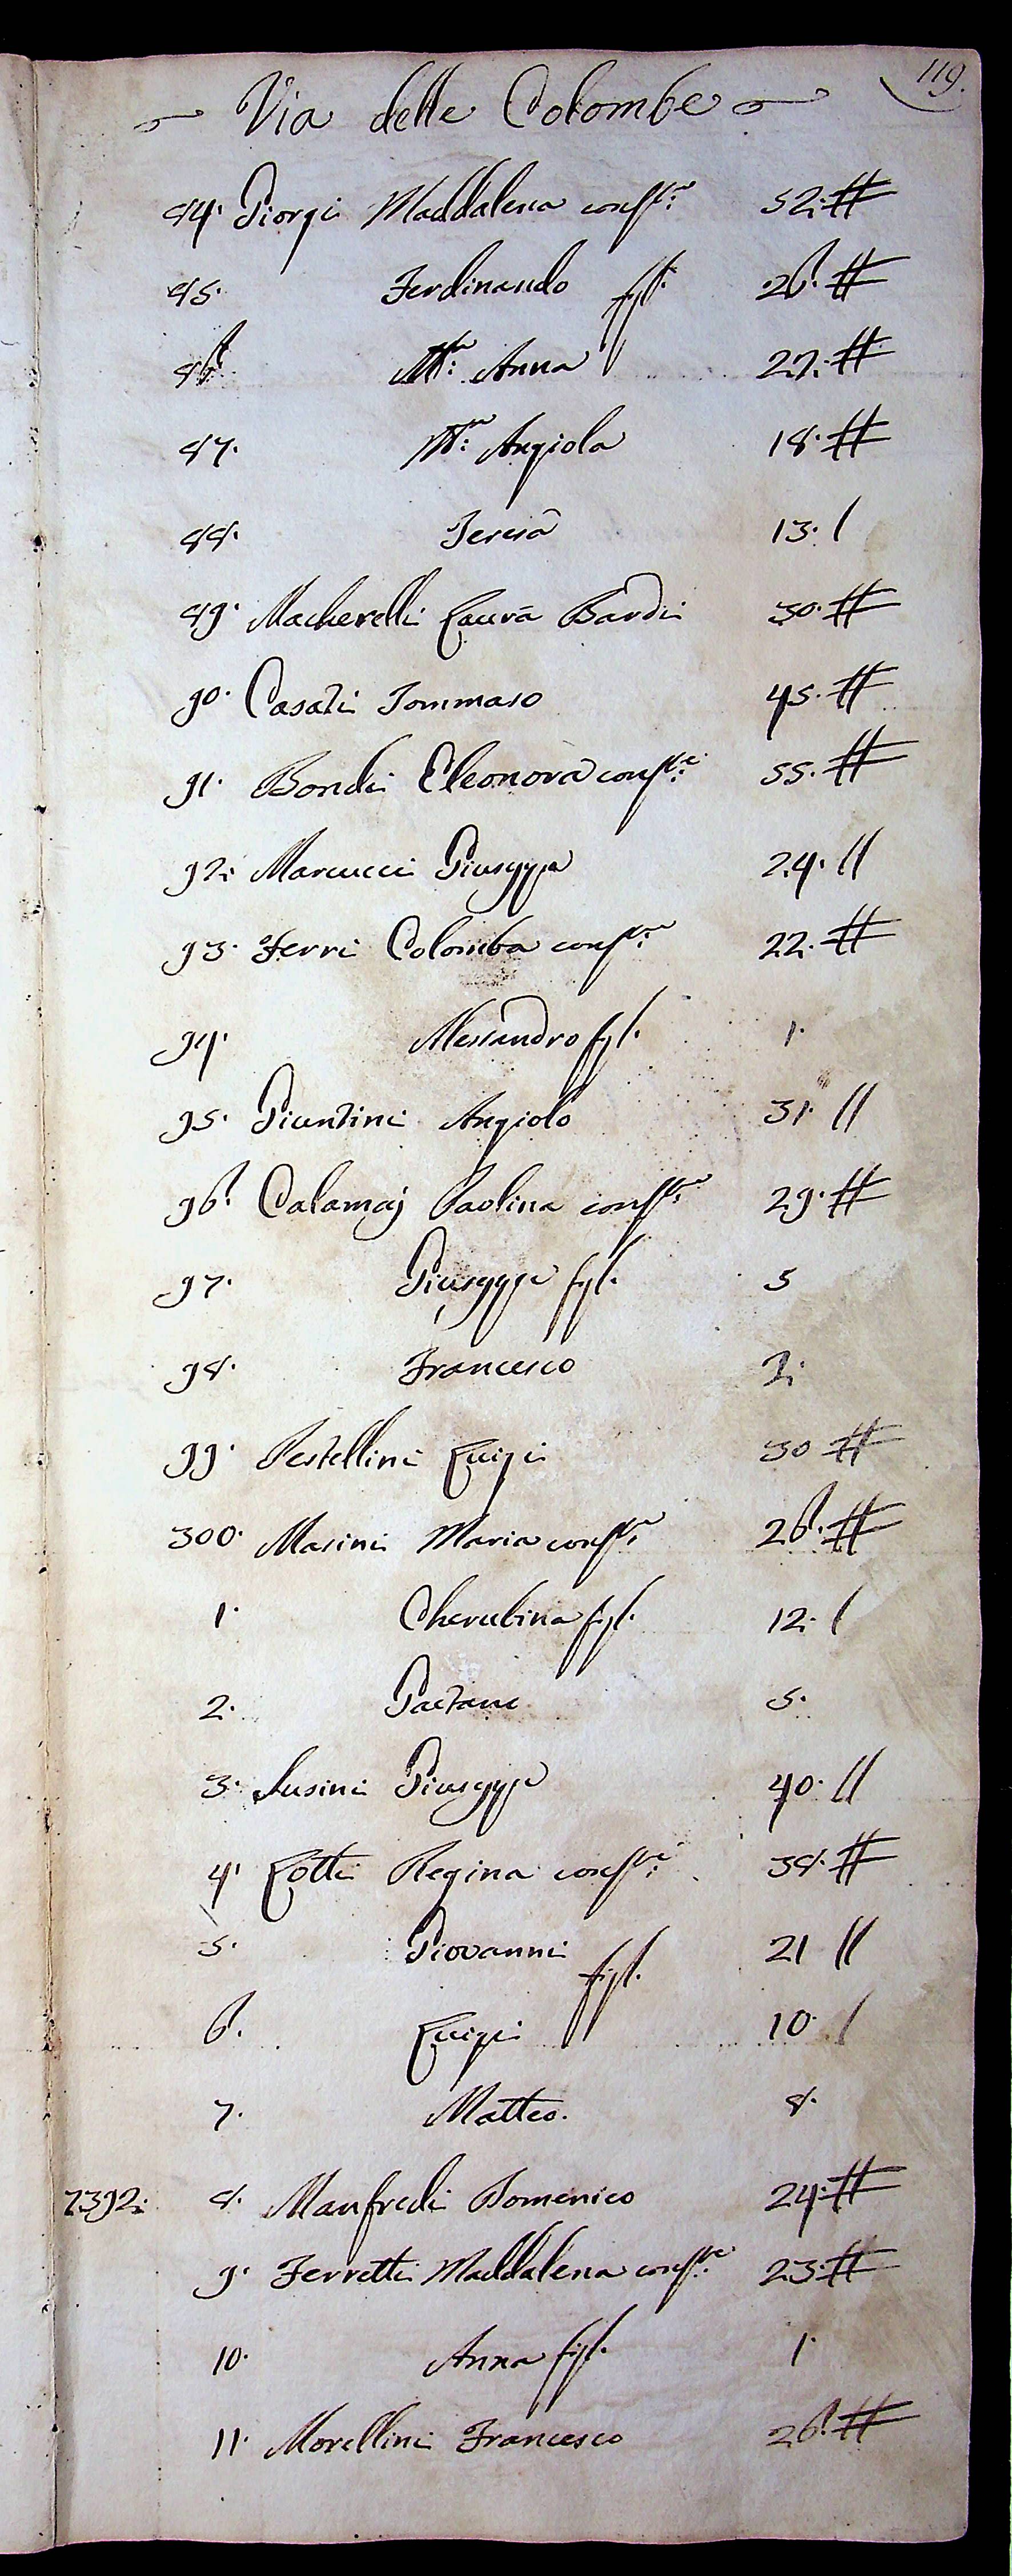 119.
Via delle Colombe
84. Giorgi Maddalena conste: 52. #
85. Ferdinando figl: 26. #
86. Ma: Anna 27. #
87. Ma: Angiola 18. #
88. Teresa 13. /
89. Macherelli Laura Bardi 30. #
90. Casati Tommaso 45. #
91. Bondi Eleonora conste: 55. #
92. Marcucci Giuseppe 24. //
93. Ferri Colomba conste: 22. #
94. Alessandro figl. 1.
95. Giuntini Angiolo 31. //
96. Calamaj Paolina conste: 29. #
97. Giuseppe figl. 5
98. Francesco 2.
99. Pestellini Luigi 30 #
300. Masini Maria conste: 26. #
1. Cherubina figl. 12. /
2. Gaetano 5.
3. Susini Giuseppe 40. //
4. Lotti Regina conste: 38. #
5. Giovanni figl. 21 //
6. Luigi 10. /
7. Matteo. 8.
2392. 8. Manfredi Domenico 24. #
9. Ferretti Maddalena conste: 23. #
10. Anna figl. 1.
11. Morellini Francesco 26. #